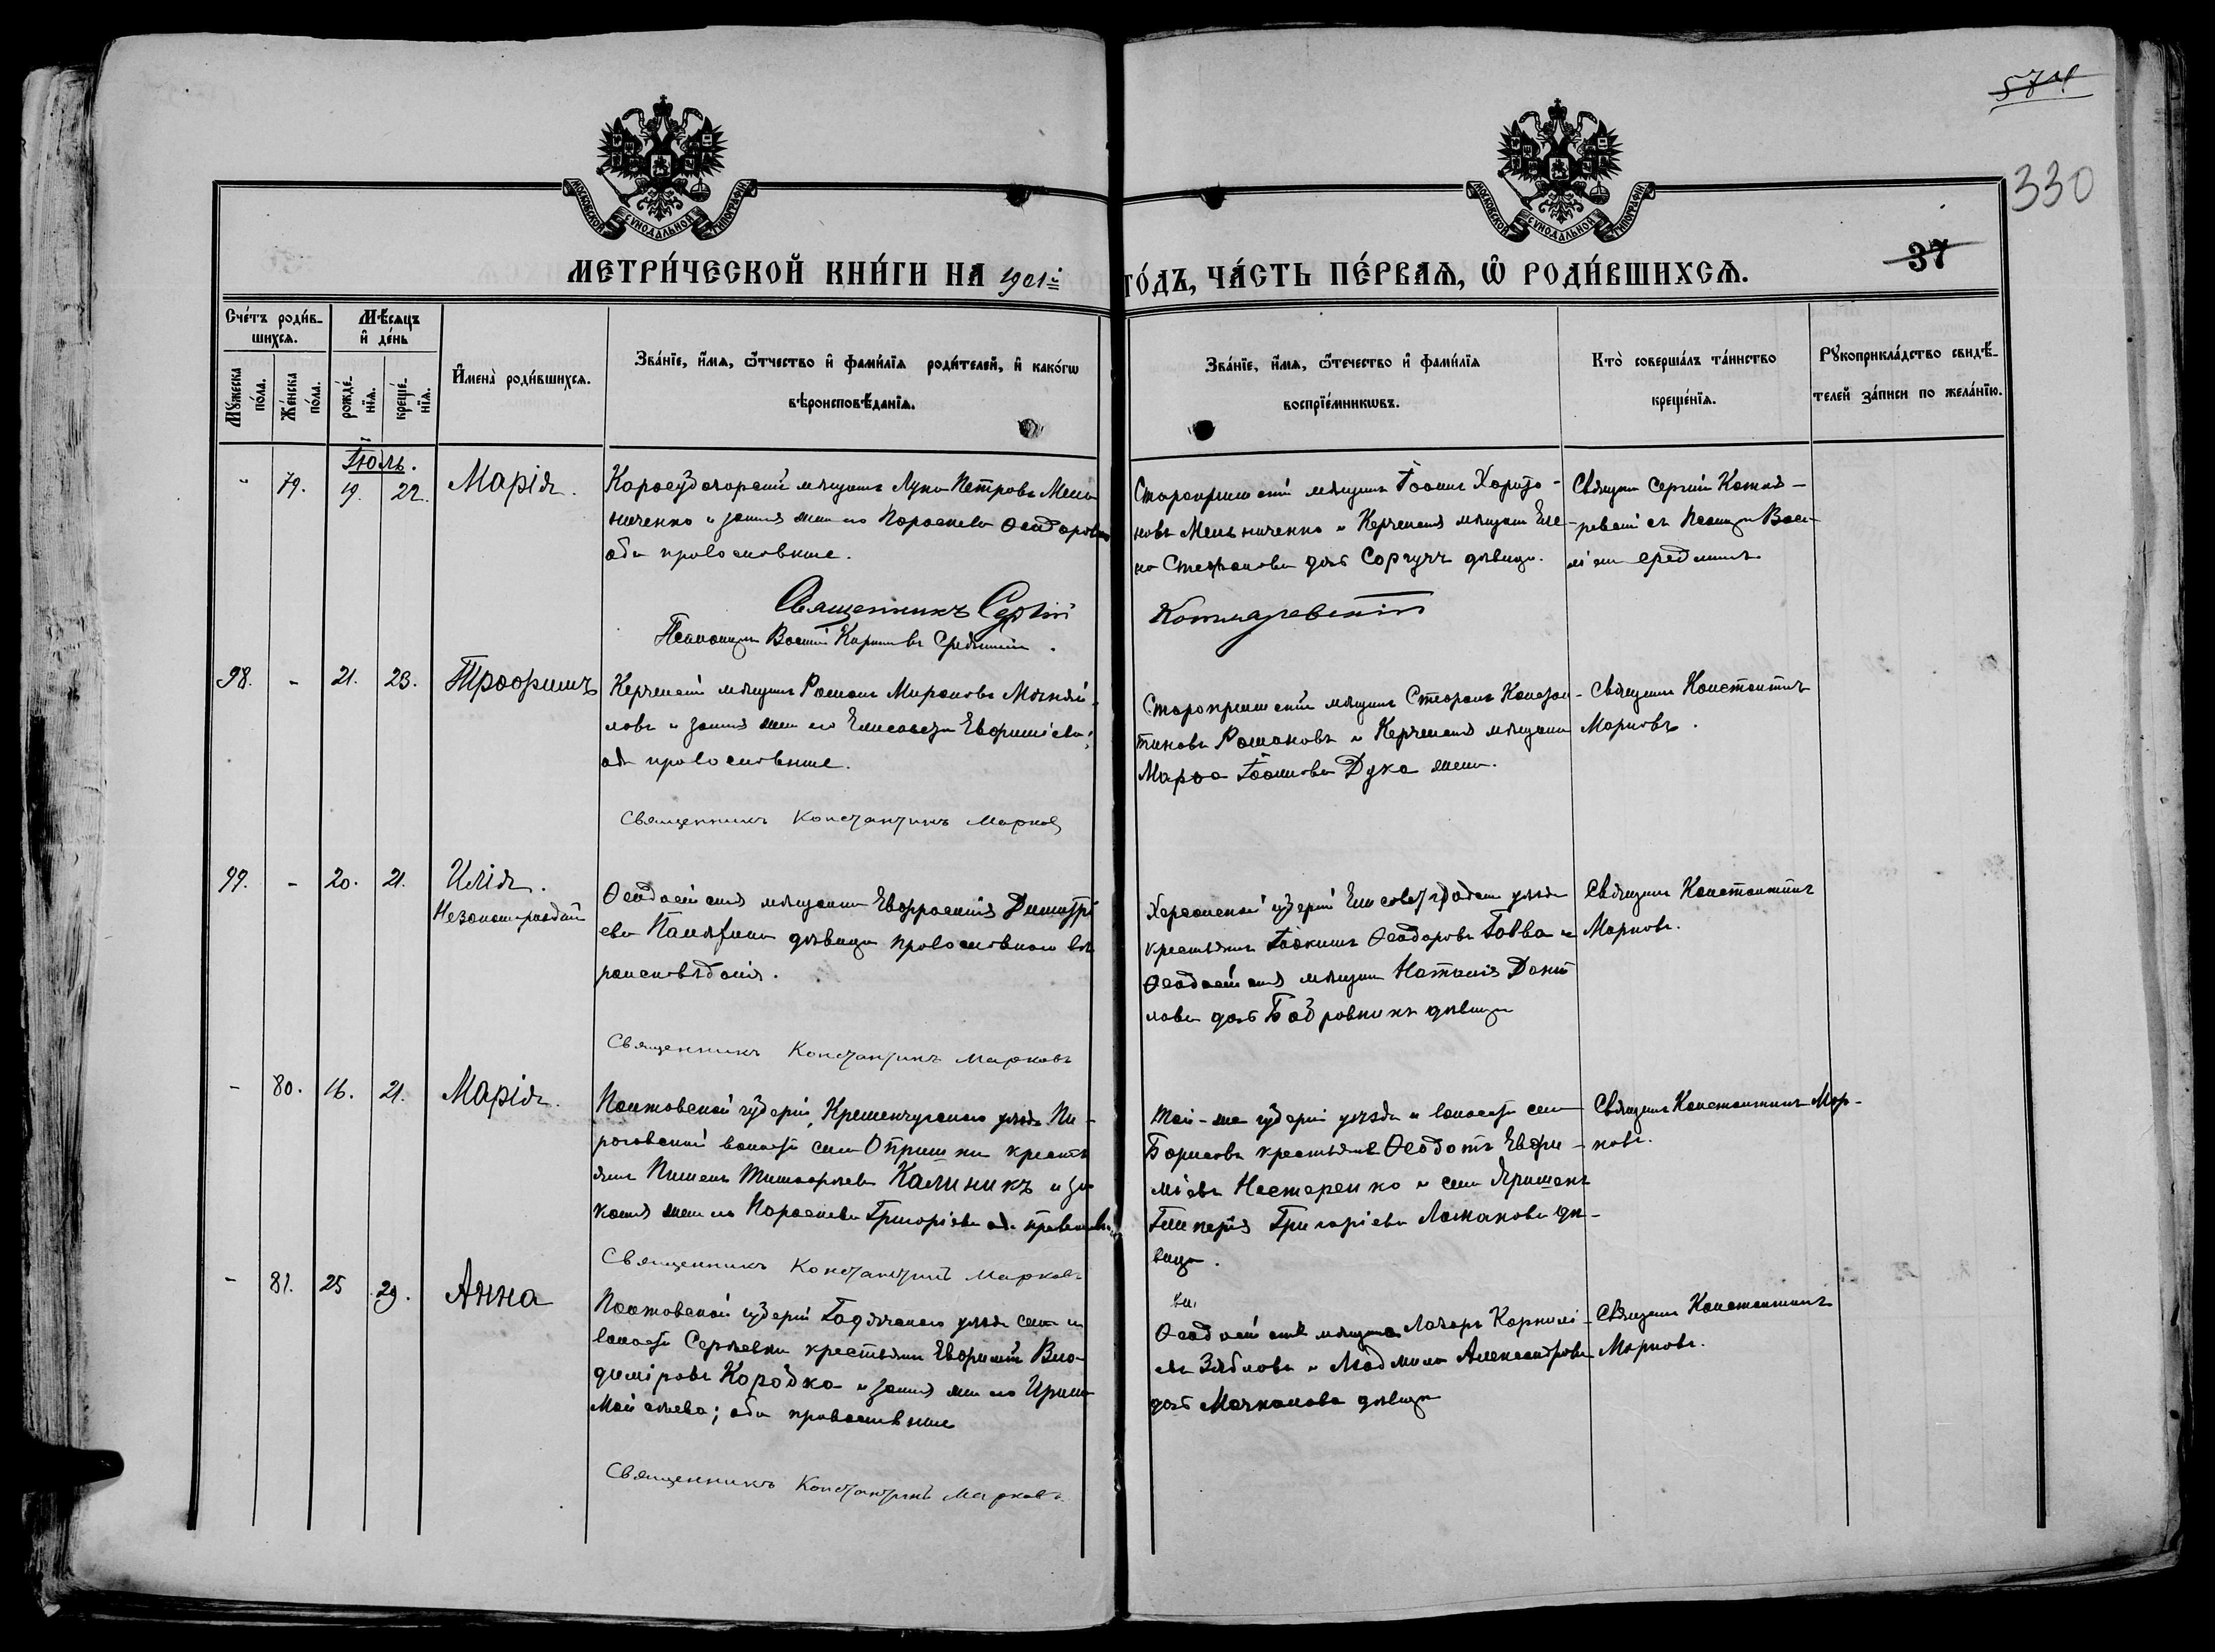 574
330
МОСКОВСКОЙ СѴНОДАЛЬНОЙ ТИПОГРАФІИ
МОСКОВСКОЙ СѴНОДАЛЬНОЙ ТИПОГРАФІИ
37
МЕТРИ́ЧЕСКОЙ КНИ́ГИ НА 1901й
ГО́ДЪ, ЧА́СТЬ ПЕ́РВАѦ, Ѡ҆ РОДИ́ВШИХСѦ.
Сче́тъ роди́в-
шихсѧ.
Мꙋ́жеска по́ла.
Же́нска по́ла.
Мѣ́сѧцъ
и҆ де́нь
рожде́-
нїѧ.
креще́-
нїѧ.
И҆мена̀ роди́вшихсѧ.
Зва́нїе, и҆́мѧ, ѻ҆́тчество и҆ фами́лїѧ роди́телей, и҆ како́гѡ
вѣроисповѣ́данїѧ.
Зва́нїе, и҆́мѧ, ѻ҆те́чество и҆ фами́лїѧ
воспрїе́мникѡвъ.
Кто̀ соверша́лъ та́инство
креще́нїѧ.
Рꙋкоприкла́дство свидѣ́-
телей за́писи по жела́нїю.
Іюль.
" 79. 19. 22. Марія.
Карасубазарскій мѣщанинъ Лука Петровъ Мель
ниченко и законная жена его Параскева Ѳеодорова
оба православные.
Священникъ Сергій
Псаломщикъ Василій
Старокрымскій мѣщанинъ Іоаннъ Харито-
новъ Мельниченко и Керченская мѣщанка Еле-
на Стефанова дочь Соргучъ дѣвица.
Котляревскій
Священ Сергій Котля-
ревскій съ Псаломщ Васи-
98. - 21. 23. Трофимъ
Керченскій мѣщанинъ Романъ Мироновъ Михай-
ловъ и законная жена его Елисавета Евфиміева;
оба православные.
Священникъ Константинъ Марковъ
Старокрымскій мѣщанинъ Стефанъ Констан-
тиновъ Романовъ и Керченская мѣщанка
Марѳа Іоаннова Дука жена.
Священ Константинъ
Марковъ.
99. - 20. 21. Илія.
Незаконнорожденный
Ѳеодосійская мѣщанка Евфросинія Димитрі
ева дѣвица православнаго вѣ
роисповѣданія.
Священникъ Константинъ Марковъ
Херсонской губерніи Елисаветградскаго уѣзда
крестьянинъ Іоакимъ Ѳеодоровъ Говва и
Ѳеодосійская мѣщанка Наталія Дани
лова дочь Бодровникъ дѣвица
Священ Константинъ
Марковъ.
- 80. 16. 21. Марія.
Полтовской губерніи, Кременчугскаго уѣзда Пи-
роговской волости села Опришки крестья
янинъ Пименъ Тимофеевъ Калиникъ и за
конная жена его Параскева Григоріева оба православн.
Священникъ Константинъ Марковъ
той-же губерніи уѣзда и волости села
Борисовъ крестьянинъ Ѳеодотъ Евфи-
міевъ Нестеренко и села
Гликерія Григоріева Ломакова дѣ-
вица.
Священ Константинъ Мар-
ковъ.
- 81. 25 29. Анна
Полтовской губерніи Гадячскаго уѣзда села и
волости Сергѣевки крестьянинъ Евфимій Вла-
диміровъ Коробка и законная жена его Ирина
Моисеева; оба православные
Священникъ Константинъ Марковъ.
Ѳеодосійскіе мѣщане Лазарь Корнилі-
евъ Зябловъ и Людмила Александрова
дочь Мочкалова дѣвица
Священ Константинъ
Марковъ.